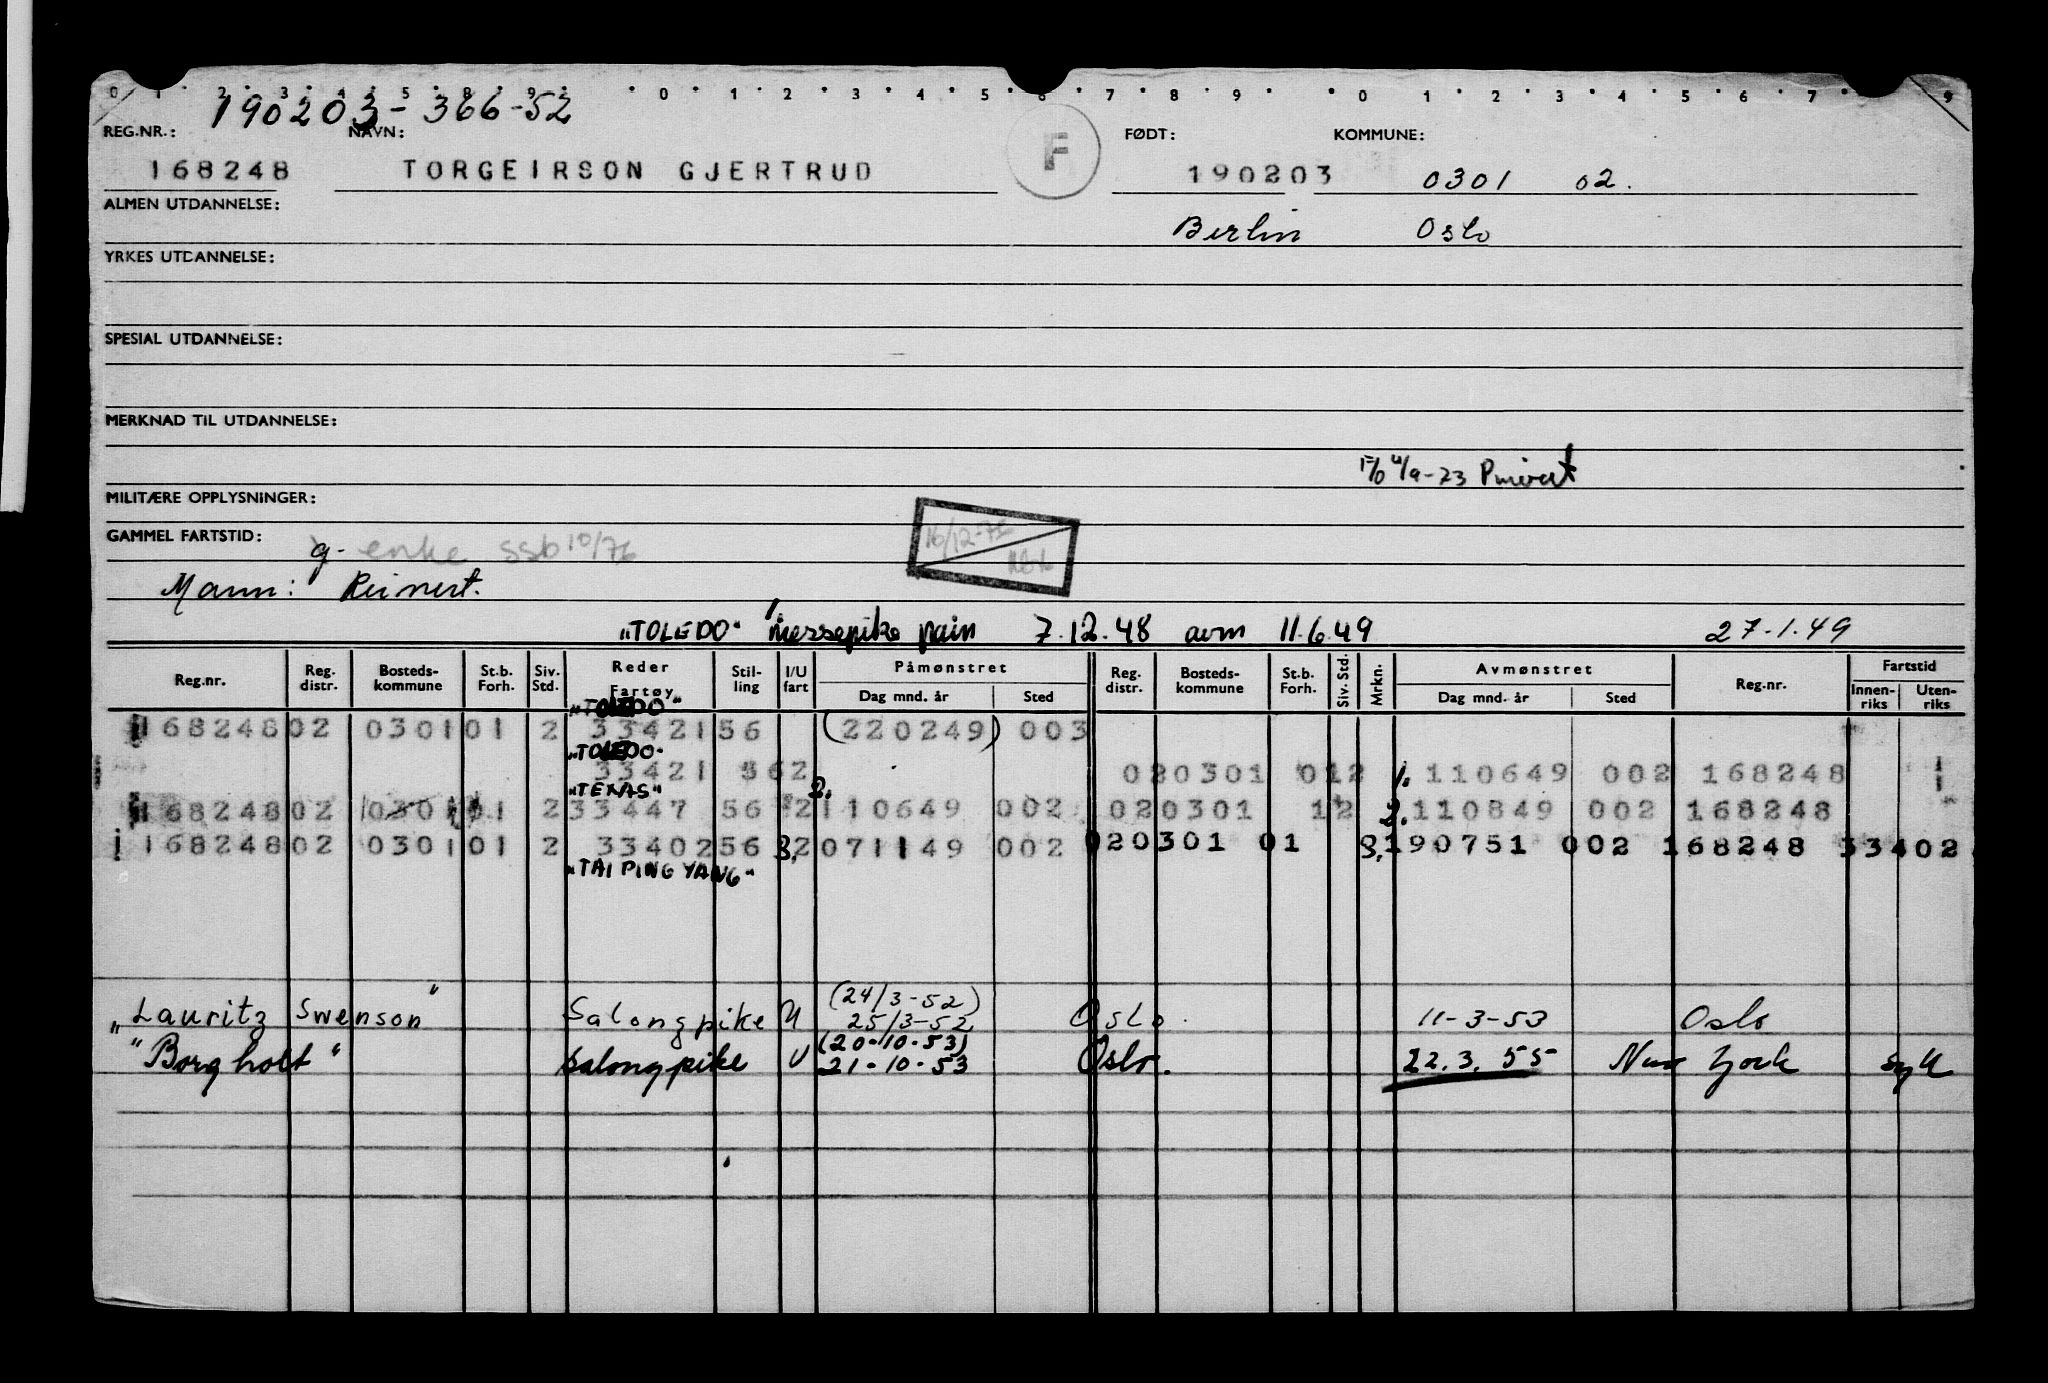 0 1 2 3 4 5 8 9 0 1 2 3 4 5 6 7 8 9 0 1 2 3 4 5 6 7 9
190203-366-52
REG.NR.: NAVN: FØDT: KOMMUNE:
168248 TORGEIRSON GJERTRUD F 190203 0301 02.
ALMEN UTDANNELSE: Berlin Oslo
YRKES UTDANNELSE:
SPESIAL UTDANNELSE:
MERKNAD TIL UTDANNELSE:
F/o 4/9-73 Privat
MILITÆRE OPPLYSNINGER:
GAMMEL FARTSTID:
g- enke ssb 10/76
16/12-75
Mann: Reinert.
"TOLEDO" messepike påm 7.12.48 avm 11.6.49 27-1.49
Reg.nr. Reg. distr. Bosteds-kommune St.b. Forh. Siv. Std. Reder Fartøy Stil-ling I/U fart Påmønstret Dag mnd. år Sted Reg. distr. Bosteds-kommune St.b. Forh. Siv. Std. Mrkn. Avmønstret Dag mnd. år Sted Reg.nr. Fartstid Innen-riks Uten-riks
"TOLEDO"
168248 02 0301 01 2 33421 56 (220249) 003
"TOLEDO"
33421 562 020301 012 1. 110649 002 168248
"TEXAS"
168248 02 0301 01 2 33447 56 2 2. 110649 002 020301 12 2. 110849 002 168248
168248 02 0301 01 2 33402 56 3, 2 071149 002 020301 01 3, 190751 002 168248 33402
"TAI PING YANG"
(24/3-52)
"Lauritz Swenson" Salongpike U 25/3-52 Oslo. 11-3-53 Oslo
(20-10-53)
"Borgholt" salongpike U 21-10-53 Oslo. 22.3.55 New York syk